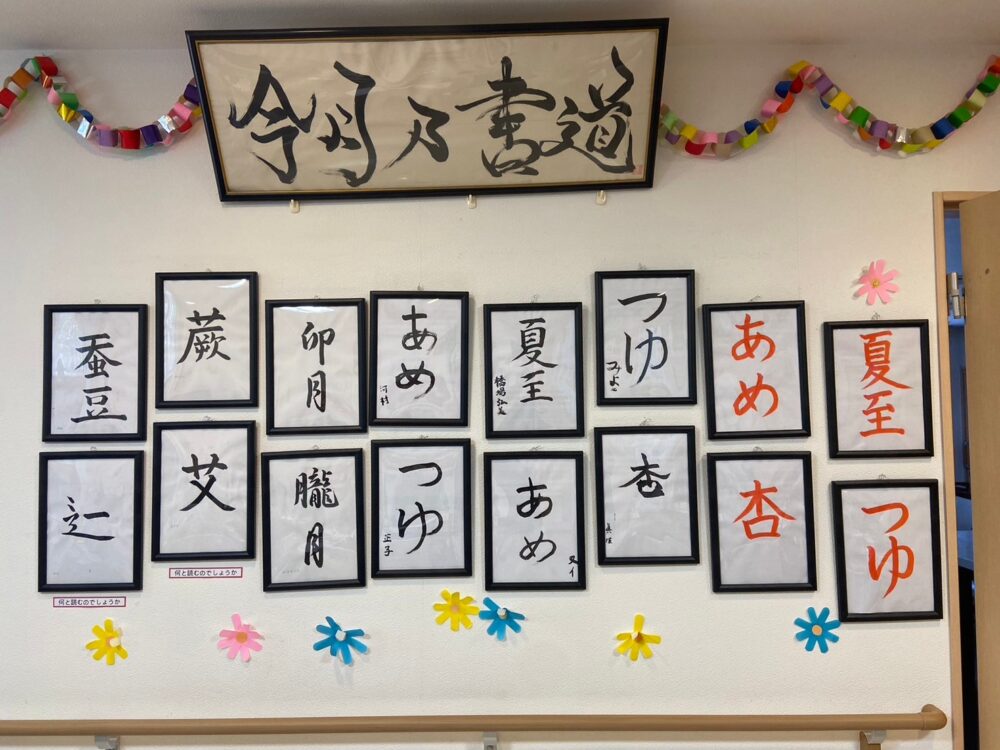 今月乃書道
蚕豆
蕨
卯月
あめ
河村
夏至
つゆ
みよこ
あめ
夏至
辷
艾
朧月
つゆ
正子
あめ
又イ
杏
杏
つゆ
何と読むのでしょうか
何と読むのでしょうか